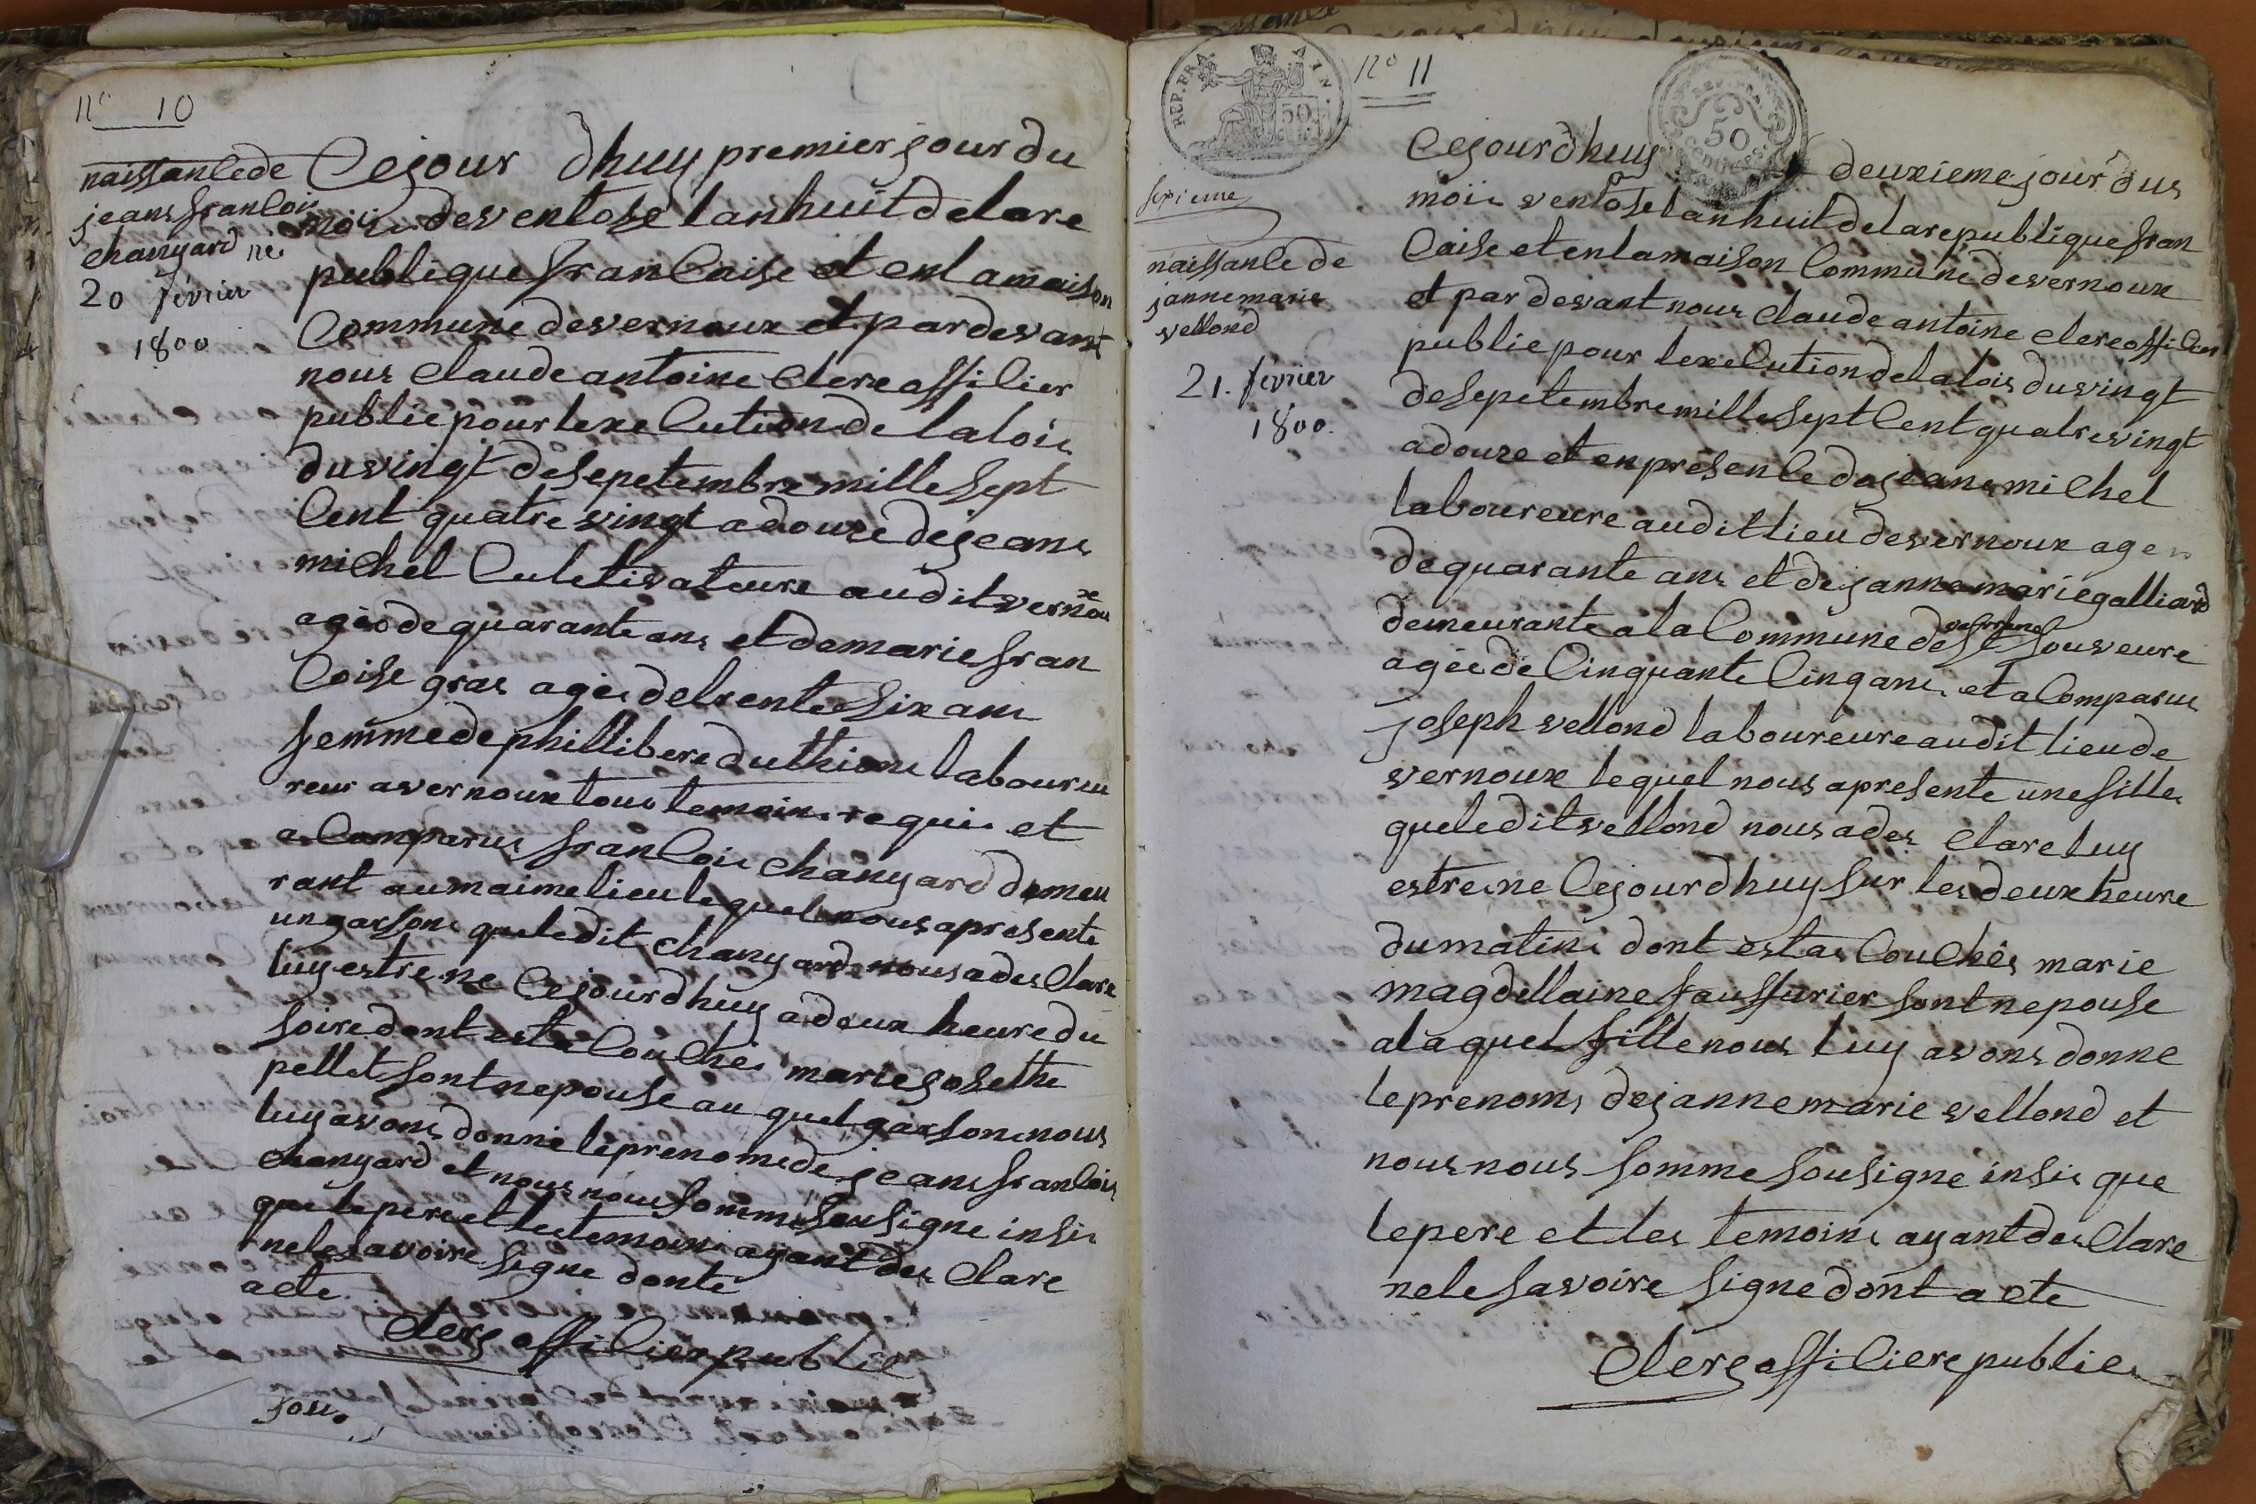 n° 10
naissance de
jeans francois
chanyard ne
20 février
1800
Cejour dhuy premier jour du
mois de ventose lan huit de la re
publique francaise et en la maison
Commune de vernoux et par devant
nous claude antoine clerc officier
public pour lexecution de la lois
du vingt de sepetembre mille sept
Cent quatre vingt a douze de jeans
michel Culetivateure audit vernoux
ageé de quarante ans et de marie fran
Coise gras ageé de trente six ans
femme de phillibere duthions laboureu
reur a vernoux tous temoins requis et
a Comparus francois chanyard demeu
rant au maime lieu lequel nous apresente
un garsons que ledit chanyard nous a des Clare
luy estre ne Cejourdhuy a deux heure du
soire dont est a Couchés marie josethe
pellet sont nepouse au quel garsons nous
luy avons donné le prenomede jeans francois
chanyard et nous nous somme sousigne insis
que le pere et les temoins ayant des Clare
nele savoire signe donte
acte
Clerc officier public
n° 11
REP. FRA. AIN.
50
50
naissance de
jannemarie
vellond
21. février
1800.
Cejourdhuy deuxieme jour dus
mois ventose lan huit de la republique fran
Caise et en la maison Commune de vernoux
et par devant nous claude antoine clerc officier
public pour lexecution de la lois du vingt
de sepetembre mille sept Cent quatre vingt
a douze et en presence de jeans michel
laboureure audit lieu de vernoux age
de quarante ans et de janne marie galliard
demeurante a la Commune de St souveure
ageé de Cinquante Cinq ans et a Comparus
joseph vellond laboureure audit lieu de
vernoux lequel nous apresente une fille
que ledit vellond nous a des Clare luy
estre ne Cejourdhuy sur les deux heure
du matins dont est as Couchés marie
magdellaine faussurier sont nepouse
a laquel fille nous luy avons donne
le prenoms de janne marie vellond et
nous nous somme sousigne insis que
le pere et les temoins ayant des Clare
nele savoire signe dont acte
Clerc officiere public